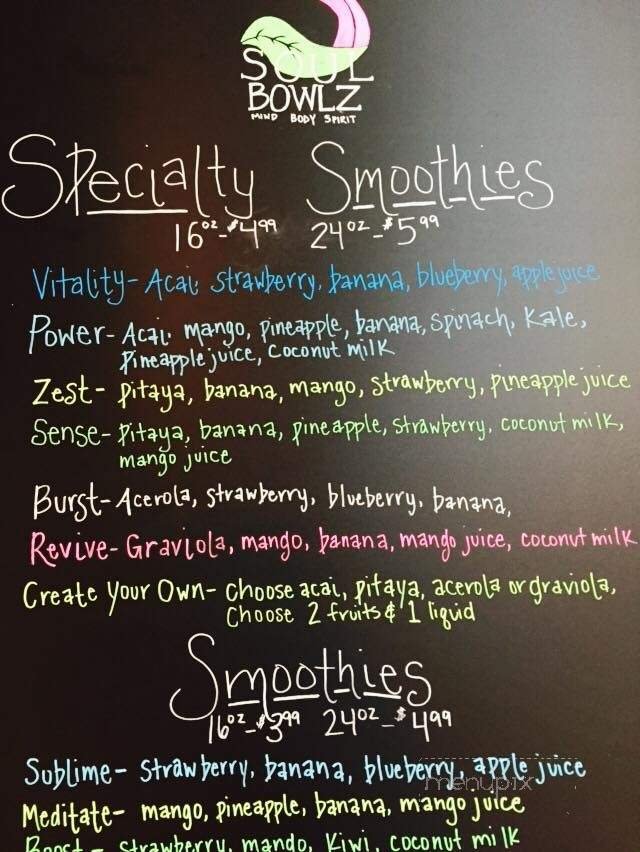 SOUL
BOWLZ
MIND BODY SPIRIT
Specialty Smoothies
16oz-$4.99 24oz-$5.99
Vitality- Acai, strawberry, banana, blueberry, apple juice
Power- Acai, mango, pineapple, banana, spinach, kale,
pineapple juice, coconut milk
Zest- pitaya, banana, mango, strawberry, pineapple juice
Sense- pitaya, banana, pineapple, strawberry, coconut milk,
mango juice
Burst- Acerola, strawberry, blueberry, banana,
Revive- Graviola, mango, banana, mango juice, coconut milk
Create Your Own- choose acai, pitaya, acerola or graviola,
Choose 2 fruits & 1 liquid
Smoothies
16oz-$3.99 24oz-$4.99
Sublime- strawberry, banana, blueberry, apple juice
menupix
Meditate- mango, pineapple, banana, mango juice
Boost- strawberry, mando, Kiwi, coconut milk